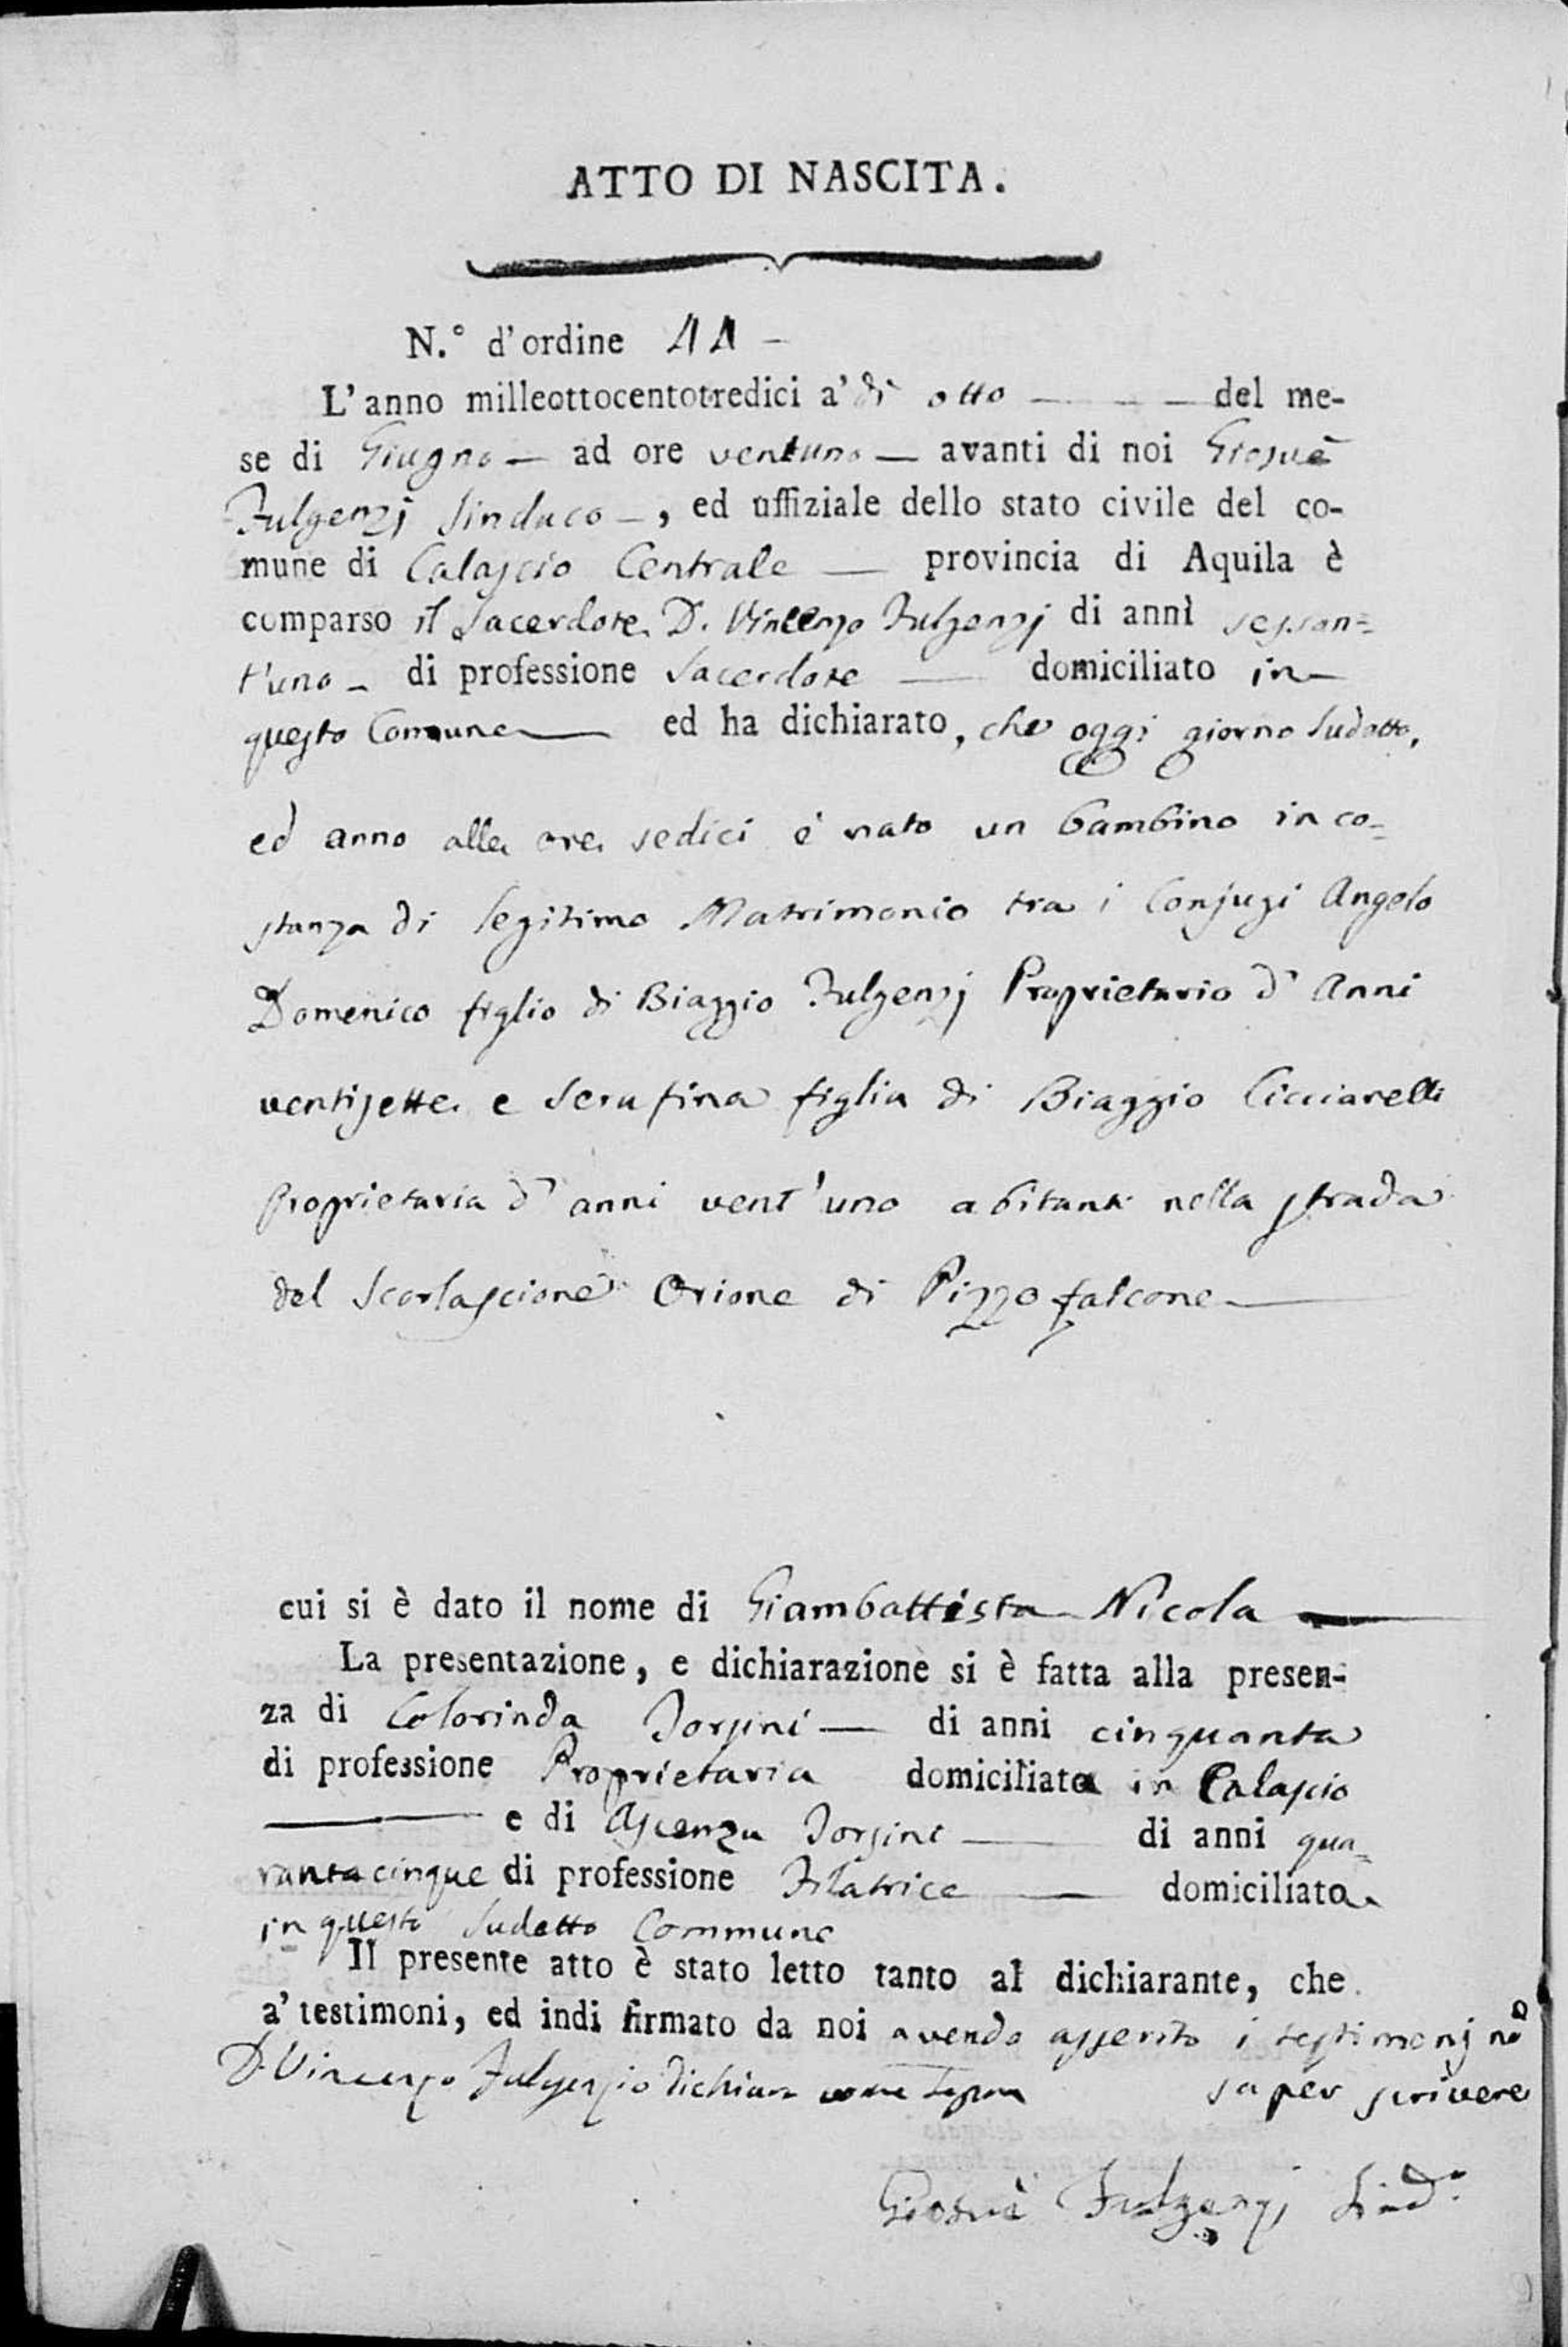 ATTO DI NASCITA.
N.° d'ordine 11 -
L'anno milleottocentotredici a' dì otto — — — del me-
se di Giugno — ad ore ventuno — avanti di noi Giosuè
Fulgenzj Sindaco —, ed uffiziale dello stato civile del co-
mune di Calascio Centrale — provincia di Aquila è
comparso il Sacerdote D. Vincenzo Fulgenzj di anni sessan=
t'uno - di professione Sacerdote — domiciliato in —
questo Comune — ed ha dichiarato, che oggi giorno sudetto,
ed anno alle ore sedici è nato un bambino in co=
stanza di legitimo Matrimonio tra i Conjugi Angelo
Domenico figlio di Biaggio Fulgenzj Proprietario d'Anni
ventisette e Serafina figlia di Biaggio Cicciarelli
Proprietaria d'anni vent'uno abitanti nella strada
del Scorlascione Orione di Pizzofalcone —
cui si è dato il nome di Giambattista Nicola —
La presentazione, e dichiarazione si è fatta alla presen-
za di Colorinda Dorsini — di anni cinquanta
di professione Proprietaria domiciliata in Calascio
— e di Ascenza Dorsini — di anni qua=
rantacinque di professione Filatrice — domiciliata
in questo sudetto Commune
Il presente atto è stato letto tanto al dichiarante, che
a' testimoni, ed indi firmato da noi avendo asserito i testimonj nō
D. Vincenzo Fulgenzio dichiaro come sopra saper scrivere
Giosuè Fulgenzj Sind.°